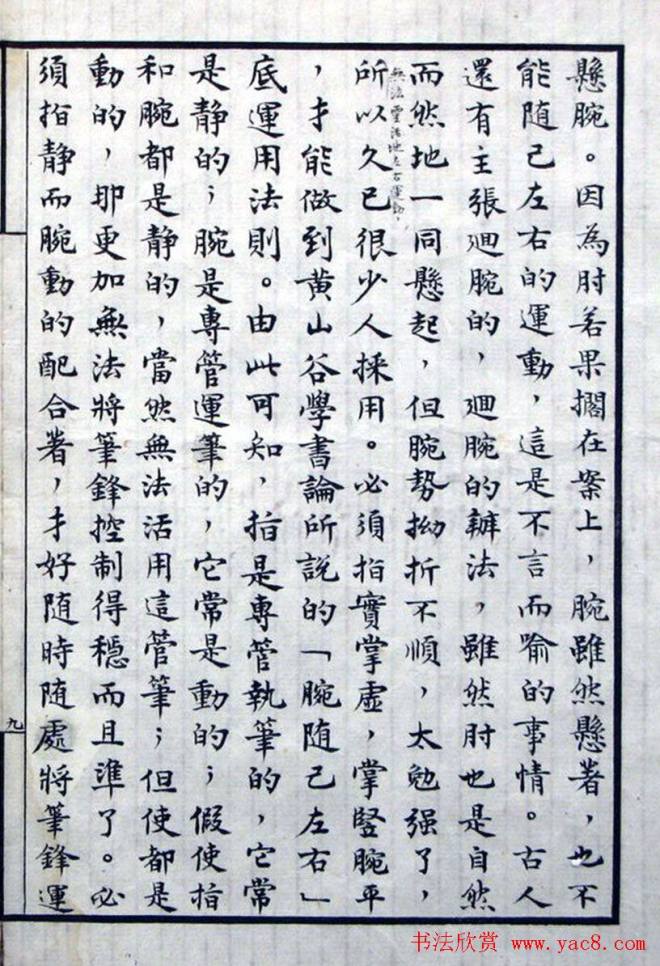 懸腕。因為肘若果擱在案上，腕雖然懸著，也不
能随己左右的運動，這是不言而喻的事情。古人
還有主張廻腕的，廻腕的辦法，雖然肘也是自然
而然地一同懸起，但腕勢拗折不順，太勉强了，
無法靈活地左右運動，
所以久已很少人採用。必須指實掌虛，掌竪腕平
，才能做到黄山谷學書論所說的「腕随己左右」
底運用法則。由此可知，指是專管執筆的，它常
是静的；腕是專管運筆的，它常是動的；假使指
和腕都是静的，當然無法活用這管筆；但使都是
動的，那更加無法將筆鋒控制得穩而且準了。必
須指静而腕動的配合著，才好随時随處將筆鋒運
九
书法欣赏 www.yac8.com